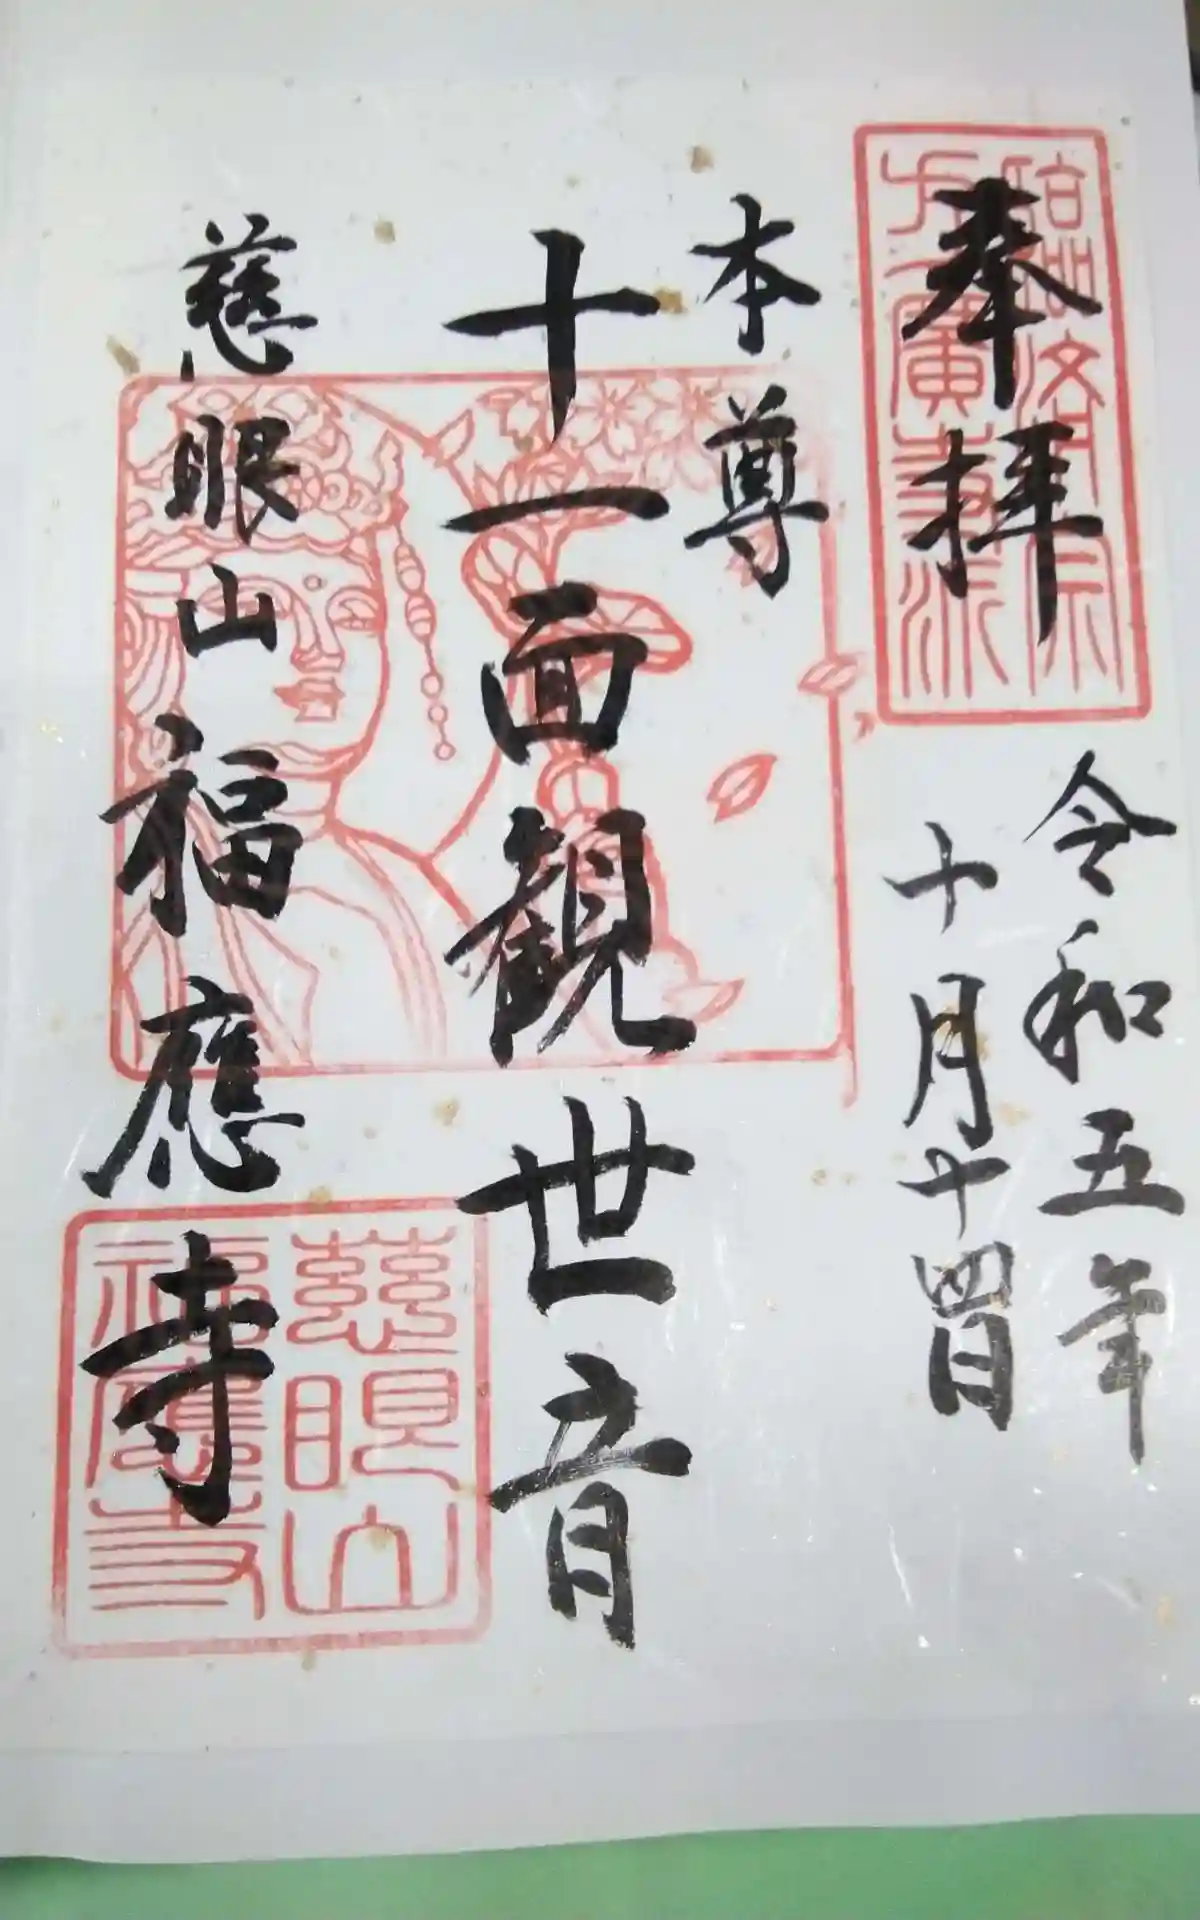 奉拝
臨済宗
方広寺派
令和五年
十月十四日
本尊
十一面観世音
慈眼山福應寺
慈眼山
福應寺